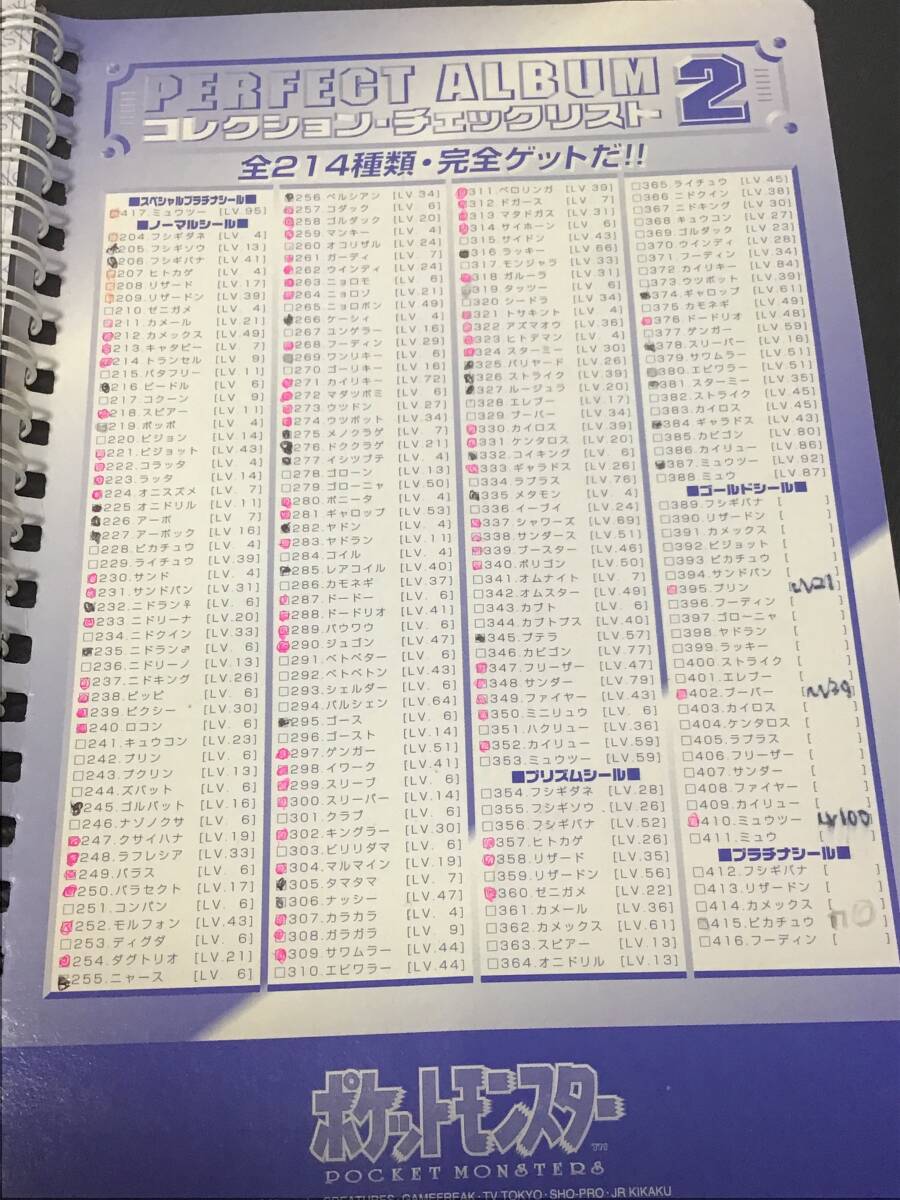 PERFECT ALBUM 2
コレクション・チェックリスト
全214種類・完全ゲットだ!!
■スペシャルプラチナシール■
417.ミュウツー [LV.95]
■ノーマルシール■
204.フシギダネ [LV. 4]
205.フシギソウ [LV.13]
206.フシギバナ [LV.41]
207.ヒトカゲ [LV. 4]
208.リザード [LV.17]
209.リザードン [LV.39]
□210.ゼニガメ [LV. 4]
211.カメール [LV.21]
212.カメックス [LV.49]
213.キャタピー [LV. 7]
214.トランセル [LV. 9]
□215.バタフリー [LV.11]
216.ビードル [LV. 6]
□217.コクーン [LV. 9]
218.スピアー [LV.11]
219.ポッポ [LV. 4]
□220.ピジョン [LV.14]
221.ピジョット [LV.43]
222.コラッタ [LV. 4]
223.ラッタ [LV.14]
224.オニスズメ [LV. 7]
225.オニドリル [LV.11]
226.アーボ [LV. 7]
227.アーボック [LV.16]
□228.ピカチュウ [LV. 4]
□229.ライチュウ [LV.39]
230.サンド [LV. 4]
231.サンドパン [LV.31]
232.ニドラン♀ [LV. 6]
233.ニドリーナ [LV.20]
□234.ニドクイン [LV.33]
235.ニドラン♂ [LV. 6]
□236.ニドリーノ [LV.13]
237.ニドキング [LV.26]
238.ピッピ [LV. 6]
239.ピクシー [LV.30]
240.ロコン [LV. 6]
□241.キュウコン [LV.23]
□242.プリン [LV. 6]
□243.プクリン [LV.13]
□244.ズバット [LV. 6]
245.ゴルバット [LV.16]
□246.ナゾノクサ [LV. 6]
247.クサイハナ [LV.19]
248.ラフレシア [LV.33]
249.パラス [LV. 6]
250.パラセクト [LV.17]
□251.コンパン [LV. 6]
252.モルフォン [LV.43]
□253.ディグダ [LV. 6]
254.ダグトリオ [LV.21]
255.ニャース [LV. 6]
256.ペルシアン [LV.34]
257.コダック [LV. 6]
258.ゴルダック [LV.20]
259.マンキー [LV. 4]
260.オコリザル [LV.24]
261.ガーディ [LV. 7]
262.ウインディ [LV.24]
263.ニョロモ [LV. 6]
264.ニョロゾ [LV.21]
□265.ニョロボン [LV.49]
266.ケーシィ [LV. 4]
□267.ユンゲラー [LV.16]
268.フーディン [LV.29]
269.ワンリキー [LV. 6]
□270.ゴーリキー [LV.16]
271.カイリキー [LV.72]
272.マダツボミ [LV. 6]
273.ウツドン [LV.27]
274.ウツボット [LV.34]
275.メノクラゲ [LV. 7]
276.ドククラゲ [LV.21]
277.イシツブテ [LV. 4]
□278.ゴローン [LV.13]
□279.ゴローニャ [LV.50]
280.ポニータ [LV. 4]
281.ギャロップ [LV.53]
282.ヤドン [LV. 4]
283.ヤドラン [LV.11]
□284.コイル [LV. 4]
285.レアコイル [LV.40]
□286.カモネギ [LV.37]
287.ドードー [LV. 6]
288.ドードリオ [LV.41]
289.パウワウ [LV. 6]
290.ジュゴン [LV.47]
□291.ベトベター [LV. 6]
□292.ベトベトン [LV.43]
□293.シェルダー [LV. 6]
□294.パルシェン [LV.64]
295.ゴース [LV. 6]
□296.ゴースト [LV.14]
297.ゲンガー [LV.51]
298.イワーク [LV.41]
299.スリープ [LV. 6]
300.スリーパー [LV.14]
□301.クラブ [LV. 6]
302.キングラー [LV.30]
□303.ビリリダマ [LV. 6]
304.マルマイン [LV.19]
305.タマタマ [LV. 7]
306.ナッシー [LV.47]
307.カラカラ [LV. 4]
308.ガラガラ [LV. 9]
309.サワムラー [LV.44]
□310.エビワラー [LV.44]
311.ベロリンガ [LV.39]
312.ドガース [LV. 7]
313.マタドガス [LV.31]
314.サイホーン [LV. 6]
□315.サイドン [LV.43]
316.ラッキー [LV.66]
□317.モンジャラ [LV.33]
318.ガルーラ [LV.31]
319.タッツー [LV. 6]
□320.シードラ [LV.34]
321.トサキント [LV. 4]
322.アズマオウ [LV.36]
323.ヒトデマン [LV. 4]
324.スターミー [LV.30]
325.バリヤード [LV.26]
326.ストライク [LV.39]
327.ルージュラ [LV.20]
□328.エレブー [LV.17]
□329.ブーバー [LV.34]
330.カイロス [LV.39]
331.ケンタロス [LV.20]
332.コイキング [LV. 6]
333.ギャラドス [LV.26]
□334.ラプラス [LV.76]
335.メタモン [LV. 4]
□336.イーブイ [LV.24]
337.シャワーズ [LV.69]
338.サンダース [LV.51]
339.ブースター [LV.46]
340.ポリゴン [LV.50]
□341.オムナイト [LV. 7]
□342.オムスター [LV.49]
□343.カブト [LV. 6]
□344.カブトプス [LV.40]
345.プテラ [LV.57]
□346.カビゴン [LV.77]
347.フリーザー [LV.47]
348.サンダー [LV.79]
349.ファイヤー [LV.43]
350.ミニリュウ [LV. 6]
□351.ハクリュー [LV.36]
352.カイリュー [LV.59]
□353.ミュウツー [LV.59]
■プリズムシール■
□354.フシギダネ [LV.28]
□355.フシギソウ [LV.26]
□356.フシギバナ [LV.52]
357.ヒトカゲ [LV.26]
358.リザード [LV.35]
□359.リザードン [LV.56]
360.ゼニガメ [LV.22]
□361.カメール [LV.36]
□362.カメックス [LV.61]
□363.スピアー [LV.13]
□364.オニドリル [LV.13]
□365.ライチュウ [LV.45]
□366.ニドクイン [LV.38]
□367.ニドキング [LV.30]
□368.キュウコン [LV.27]
□369.ゴルダック [LV.23]
□370.ウインディ [LV.28]
□371.フーディン [LV.34]
□372.カイリキー [LV.84]
□373.ウツボット [LV.39]
374.ギャロップ [LV.61]
□375.カモネギ [LV.49]
376.ドードリオ [LV.48]
□377.ゲンガー [LV.59]
378.スリーパー [LV.16]
□379.サワムラー [LV.51]
380.エビワラー [LV.51]
381.スターミー [LV.35]
□382.ストライク [LV.45]
□383.カイロス [LV.45]
384.ギャラドス [LV.43]
□385.カビゴン [LV.80]
□386.カイリュー [LV.86]
387.ミュウツー [LV.92]
□388.ミュウ [LV.87]
■ゴールドシール■
□389.フシギバナ [ ]
□390.リザードン [ ]
□391.カメックス [ ]
□392.ピジョット [ ]
□393.ピカチュウ [ ]
□394.サンドパン [ ]
395.プリン [LV21]
□396.フーディン [ ]
□397.ゴローニャ [ ]
□398.ヤドラン [ ]
□399.ラッキー [ ]
□400.ストライク [ ]
□401.エレブー [ ]
402.ブーバー [LV39]
□403.カイロス [ ]
□404.ケンタロス [ ]
□405.ラプラス [ ]
□406.フリーザー [ ]
□407.サンダー [ ]
□408.ファイヤー [ ]
□409.カイリュー [ ]
410.ミュウツー [LV100]
□411.ミュウ [ ]
■プラチナシール■
□412.フシギバナ [ ]
□413.リザードン [ ]
□414.カメックス [ ]
415.ピカチュウ [ ]
□416.フーディン [ ]
ポケットモンスター
TM
POCKET MONSTERS
CREATURES・GAMEFREAK・TV TOKYO・SHO-PRO・JR KIKAKU